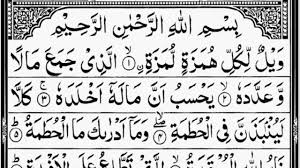 بِسْمِ اللهِ الرَّحْمٰنِ الرَّحِيْمِ
وَيْلٌ لِّكُلِّ هُمَزَةٍ لُّمَزَةِ ۙ﴿۱﴾ الَّذِيْ جَمَعَ مَالًا
وَّ عَدَّدَهٗ ۙ﴿۲﴾ يَحْسَبُ اَنَّ مَالَهٗۤ اَخْلَدَهٗ ۚ﴿۳﴾ كَلَّا
لَيُنْۢبَذَنَّ فِي الْحُطَمَةِ ۖ﴿۴﴾ وَ مَاۤ اَدْرٰىكَ مَا الْحُطَمَةُ ؕ﴿۵﴾